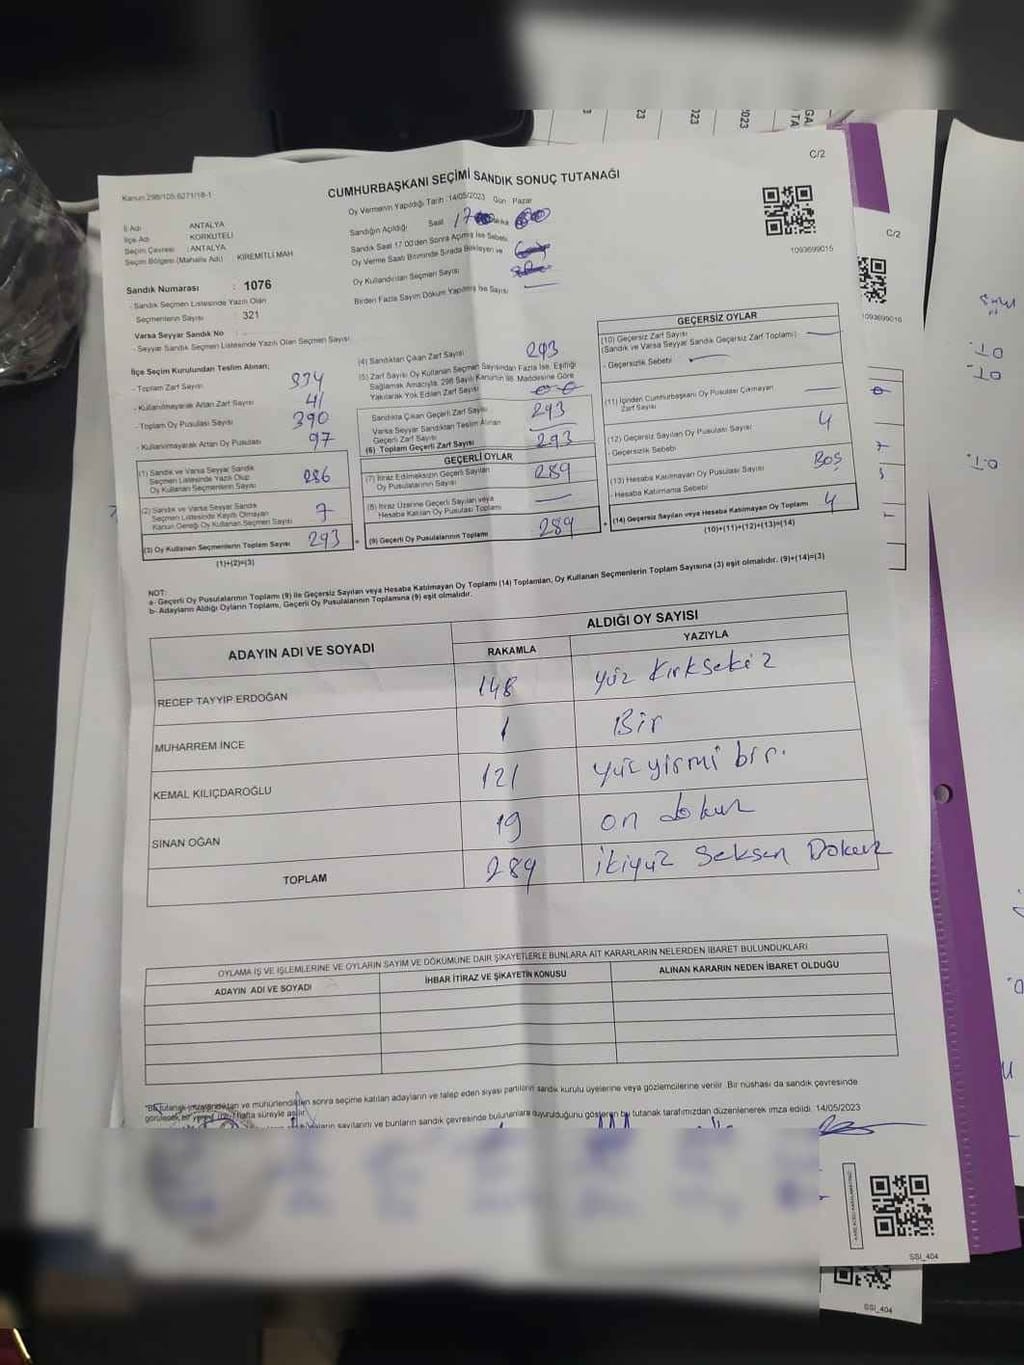 C/2
Kanun 298/105.6271/18-1
CUMHURBAŞKANI SEÇİMİ SANDIK SONUÇ TUTANAĞI
Oy Vermenin Yapıldığı Tarih :14/05/2023 Gün Pazar
İl Adı ANTALYA
İlçe Adı KORKUTELİ
Seçim Çevresi : ANTALYA
Seçim Bölgesi (Mahalle Adı) : KİREMİTLİ MAH
Sandığın Açıldığı Saat 17
Sandık Saat 17:00'den Sonra Açılmış İse Sebebi
Oy Verme Saati Bitiminde Sırada Bekleyen ve
Oy Kullandırılan Seçmen Sayısı
Birden Fazla Sayım Döküm Yapılmış İse Sayısı
1093699015
Sandık Numarası : 1076
- Sandık Seçmen Listesinde Yazılı Olan
Seçmenlerin Sayısı : 321
Varsa Seyyar Sandık No
- Seyyar Sandık Seçmen Listesinde Yazılı Olan Seçmen Sayısı
İlçe Seçim Kurulundan Teslim Alınan;
- Toplam Zarf Sayısı
- Kullanılmayarak Artan Zarf Sayısı 41
- Toplam Oy Pusulası Sayısı 390
- Kullanılmayarak Artan Oy Pusulası 97
(1) Sandık ve Varsa Seyyar Sandık
Seçmen Listesinde Yazılı Olup
Oy Kullanan Seçmenlerin Sayısı 286
(2) Sandık ve Varsa Seyyar Sandık
Seçmen Listesinde Kayıtlı Olmayan
Kanun Gereği Oy Kullanan Seçmen Sayısı 7
(3) Oy Kullanan Seçmenlerin Toplam Sayısı 293
(1)+(2)=(3)
(4) Sandıktan Çıkan Zarf Sayısı 293
(5) Zarf Sayısı Oy Kullanan Seçmen Sayısından Fazla İse, Eşitliği
Sağlamak Amacıyla, 298 Sayılı Kanun'un 98. Maddesine Göre
Yakılarak Yok Edilen Zarf Sayısı
Sandıkta Çıkan Geçerli Zarf Sayısı 293
Varsa Seyyar Sandıktan Teslim Alınan
Geçerli Zarf Sayısı
(6) Toplam Geçerli Zarf Sayısı 293
GEÇERLİ OYLAR
(7) İtiraz Edilmeksizin Geçerli Sayılan
Oy Pusulalarının Sayısı 289
(8) İtiraz Üzerine Geçerli Sayılan veya
Hesaba Katılan Oy Pusulası Toplamı
(9) Geçerli Oy Pusulalarının Toplamı 289
GEÇERSİZ OYLAR
(10) Geçersiz Zarf Sayısı
(Sandık ve Varsa Seyyar Sandık Geçersiz Zarf Toplamı)
- Geçersizlik Sebebi
(11) İçinden Cumhurbaşkanı Oy Pusulası Çıkmayan
Zarf Sayısı
(12) Geçersiz Sayılan Oy Pusulası Sayısı 4
- Geçersizlik Sebebi BOŞ
(13) Hesaba Katılmayan Oy Pusulası Sayısı
- Hesaba Katılmama Sebebi
(14) Geçersiz Sayılan veya Hesaba Katılmayan Oy Toplamı 4
(10)+(11)+(12)+(13)=(14)
NOT:
a- Geçerli Oy Pusulalarının Toplamı (9) ile Geçersiz Sayılan veya Hesaba Katılmayan Oy Toplamı (14) Toplamları, Oy Kullanan Seçmenlerin Toplam Sayısına (3) eşit olmalıdır. (9)+(14)=(3)
b- Adayların Aldığı Oyların Toplamı, Geçerli Oy Pusulalarının Toplamına (9) eşit olmalıdır.
ADAYIN ADI VE SOYADI
ALDIĞI OY SAYISI
RAKAMLA YAZIYLA
RECEP TAYYİP ERDOĞAN 148 yüz Kırksekiz
MUHARREM İNCE 1 Bir
KEMAL KILIÇDAROĞLU 121 yüz yirmi bir.
SİNAN OĞAN 19 on dokuz
TOPLAM 289 ikiyüz Seksen Dokuz
OYLAMA İŞ VE İŞLEMLERİNE VE OYLARIN SAYIM VE DÖKÜMÜNE DAİR ŞİKAYETLERLE BUNLARA AİT KARARLARIN NELERDEN İBARET BULUNDUKLARI
ADAYIN ADI VE SOYADI İHBAR İTİRAZ VE ŞİKAYETİN KONUSU ALINAN KARARIN NEDEN İBARET OLDUĞU
*Bu tutanak imzalandıktan ve mühürlendikten sonra seçime katılan adayların ve talep eden siyasi partilerin sandık kurulu üyelerine veya gözlemcilerine verilir. Bir nüshası da sandık çevresinde
görülecek bir yere 1 (bir) hafta süreyle asılır.
sayılarını ve bunların sandık çevresinde bulunanlara duyurulduğunu gösteren bu tutanak tarafımızdan düzenlenerek imza edildi. 14/05/2023
SSİ_404
SSİ_404
C/2
1093699016